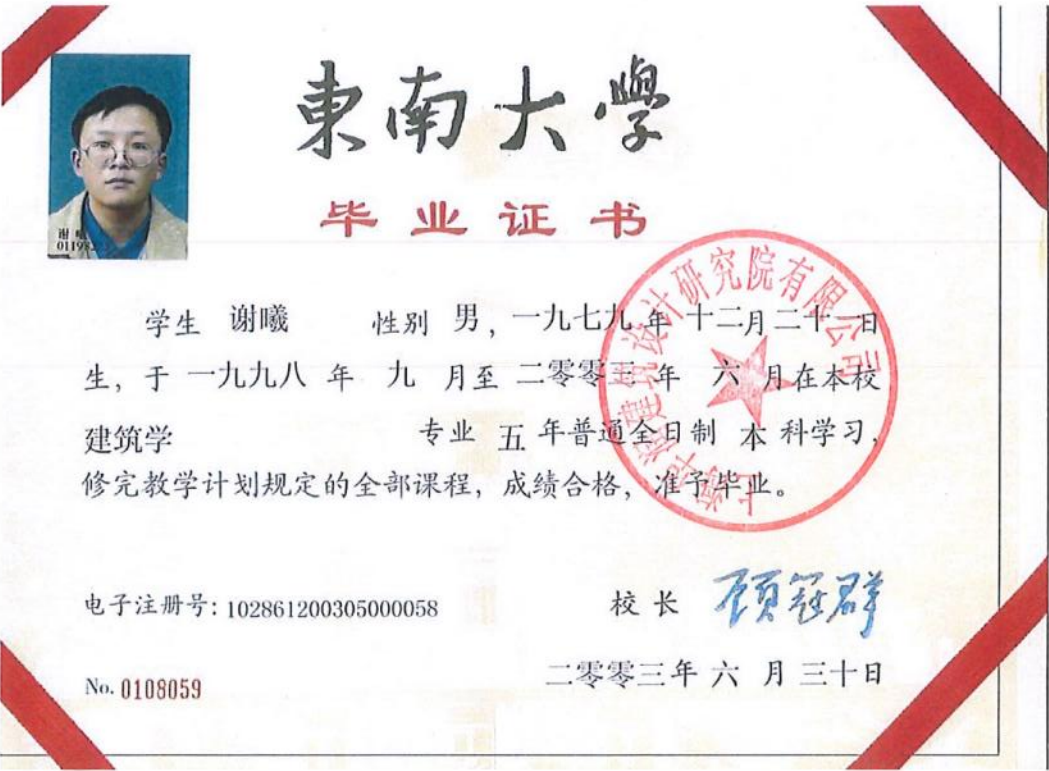 東南大學
毕业证书
谢曦
学生 谢曦 性别 男，一九七九年 十二月二十一日
生，于 一九九八 年 九 月至 二零零三 年 六 月在本校
建筑学 专业 五 年普通全日制 本 科学习，
修完教学计划规定的全部课程，成绩合格，准予毕业。
建筑设计研究院有限公司
电子注册号：102861200305000058
校长 顾冠群
No. 0108059
二零零三年 六 月 三十日